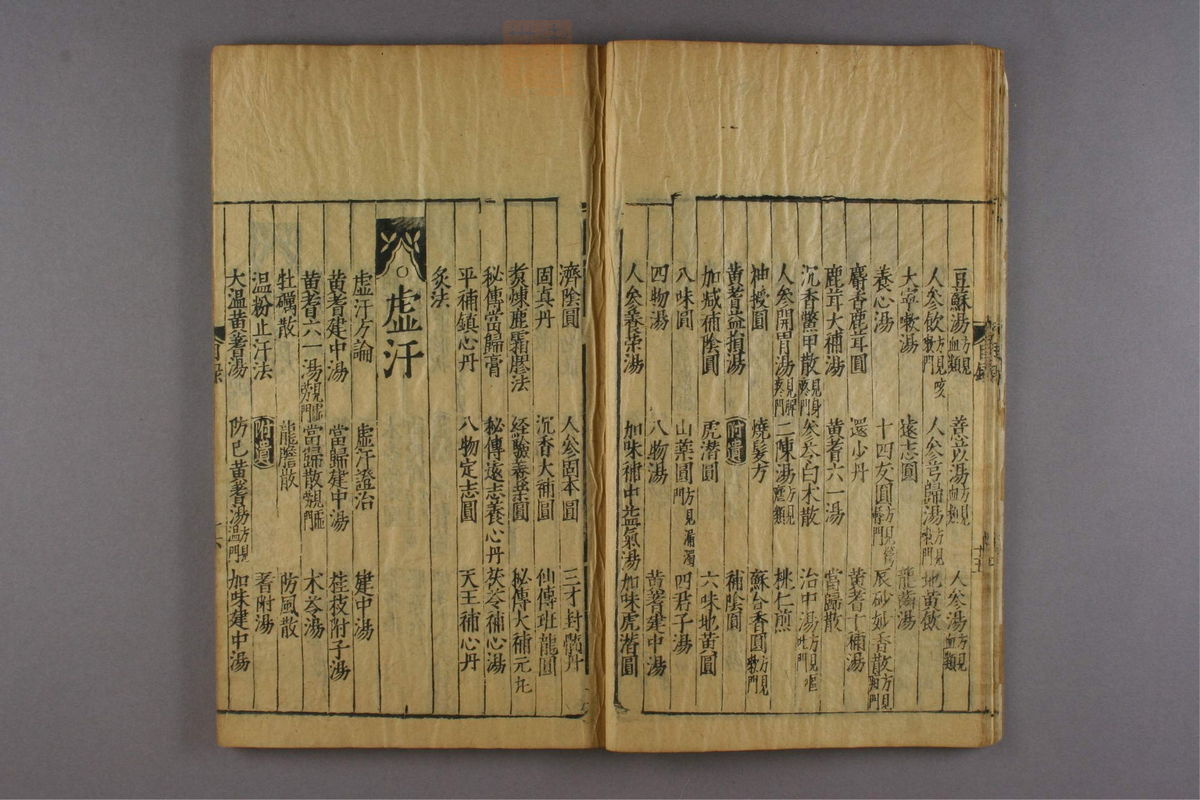 豆蘇湯方見血類 善豆湯方見血類 人參湯方見血類
人參飲方見咳嗽門 人參芎歸湯方見嗽門 地黃飲
大寧嗽湯 遠志圓 龍齒湯
養心湯 十四友圓 辰砂妙香散方見
麝香鹿茸圓 還少丹 黃蓍十補湯
鹿茸大補湯 黃蓍六一湯 當歸散
沉香鱉甲散 參苓白朮散 治中湯
人參開胃湯 二陳湯 桃仁煎
神授圓 燒髮方 蘇合香圓方見
黃蓍益損湯 附遺 補陰圓
加減補陰圓 虎潛圓 六味地黃圓
八味圓 山藥圓方見漏濁門 四君子湯
四物湯 八物湯 黃蓍建中湯
人參養榮湯 加味補中益氣湯 加味虎潛圓
濟陰圓 人參固本圓 三才封髓丹
固真丹 沉香大補圓 仙傳班龍圓
煮煉鹿霜膠法 經驗養榮圓 秘傳大補元丸
秘傳當歸膏 秘傳遠志養心丹 茯苓補心湯
平補鎮心丹 八物定志圓 天王補心丹
灸法
虛汗
虛汗方論 虛汗證治 建中湯
黃蓍建中湯 當歸建中湯 桂枝附子湯
黃蓍六一湯 當歸散 木苓湯
牡礪散 龍膽散 防風散
温粉止汗法 附遺 蓍附湯
大溫黃蓍湯 防已黃蓍湯方見溫門 加味建中湯